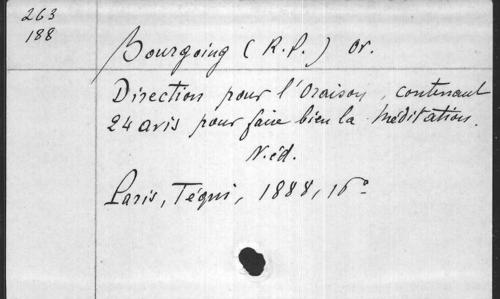 263
188
Bourgoing (R.P.) Or.
Direction pour l'Oraison, contenant
24 avis pour faire bien la Méditation.
N. éd.
Paris, Téqui, 1888, 16°